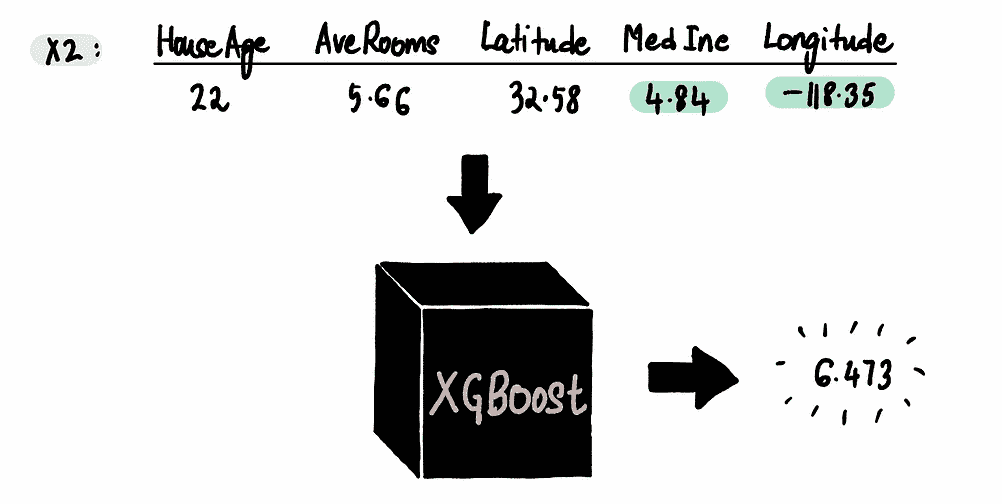 X2 : HouseAge AveRooms Latitude Med Inc Longitude
22 5.66 32.58 4.84 -118.35
XGBoost
6.473